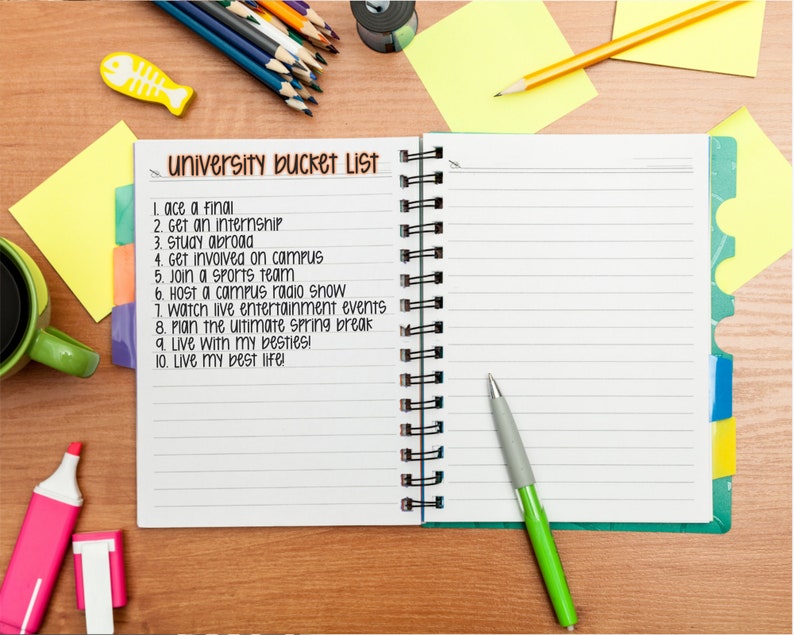 University Bucket List
1. Ace a final
2. Get an internship
3. Study abroad
4. Get involved on campus
5. Join a sports team
6. Host a campus radio show
7. Watch live entertainment events
8. Plan the ultimate spring break
9. Live with my besties!
10. Live my best life!